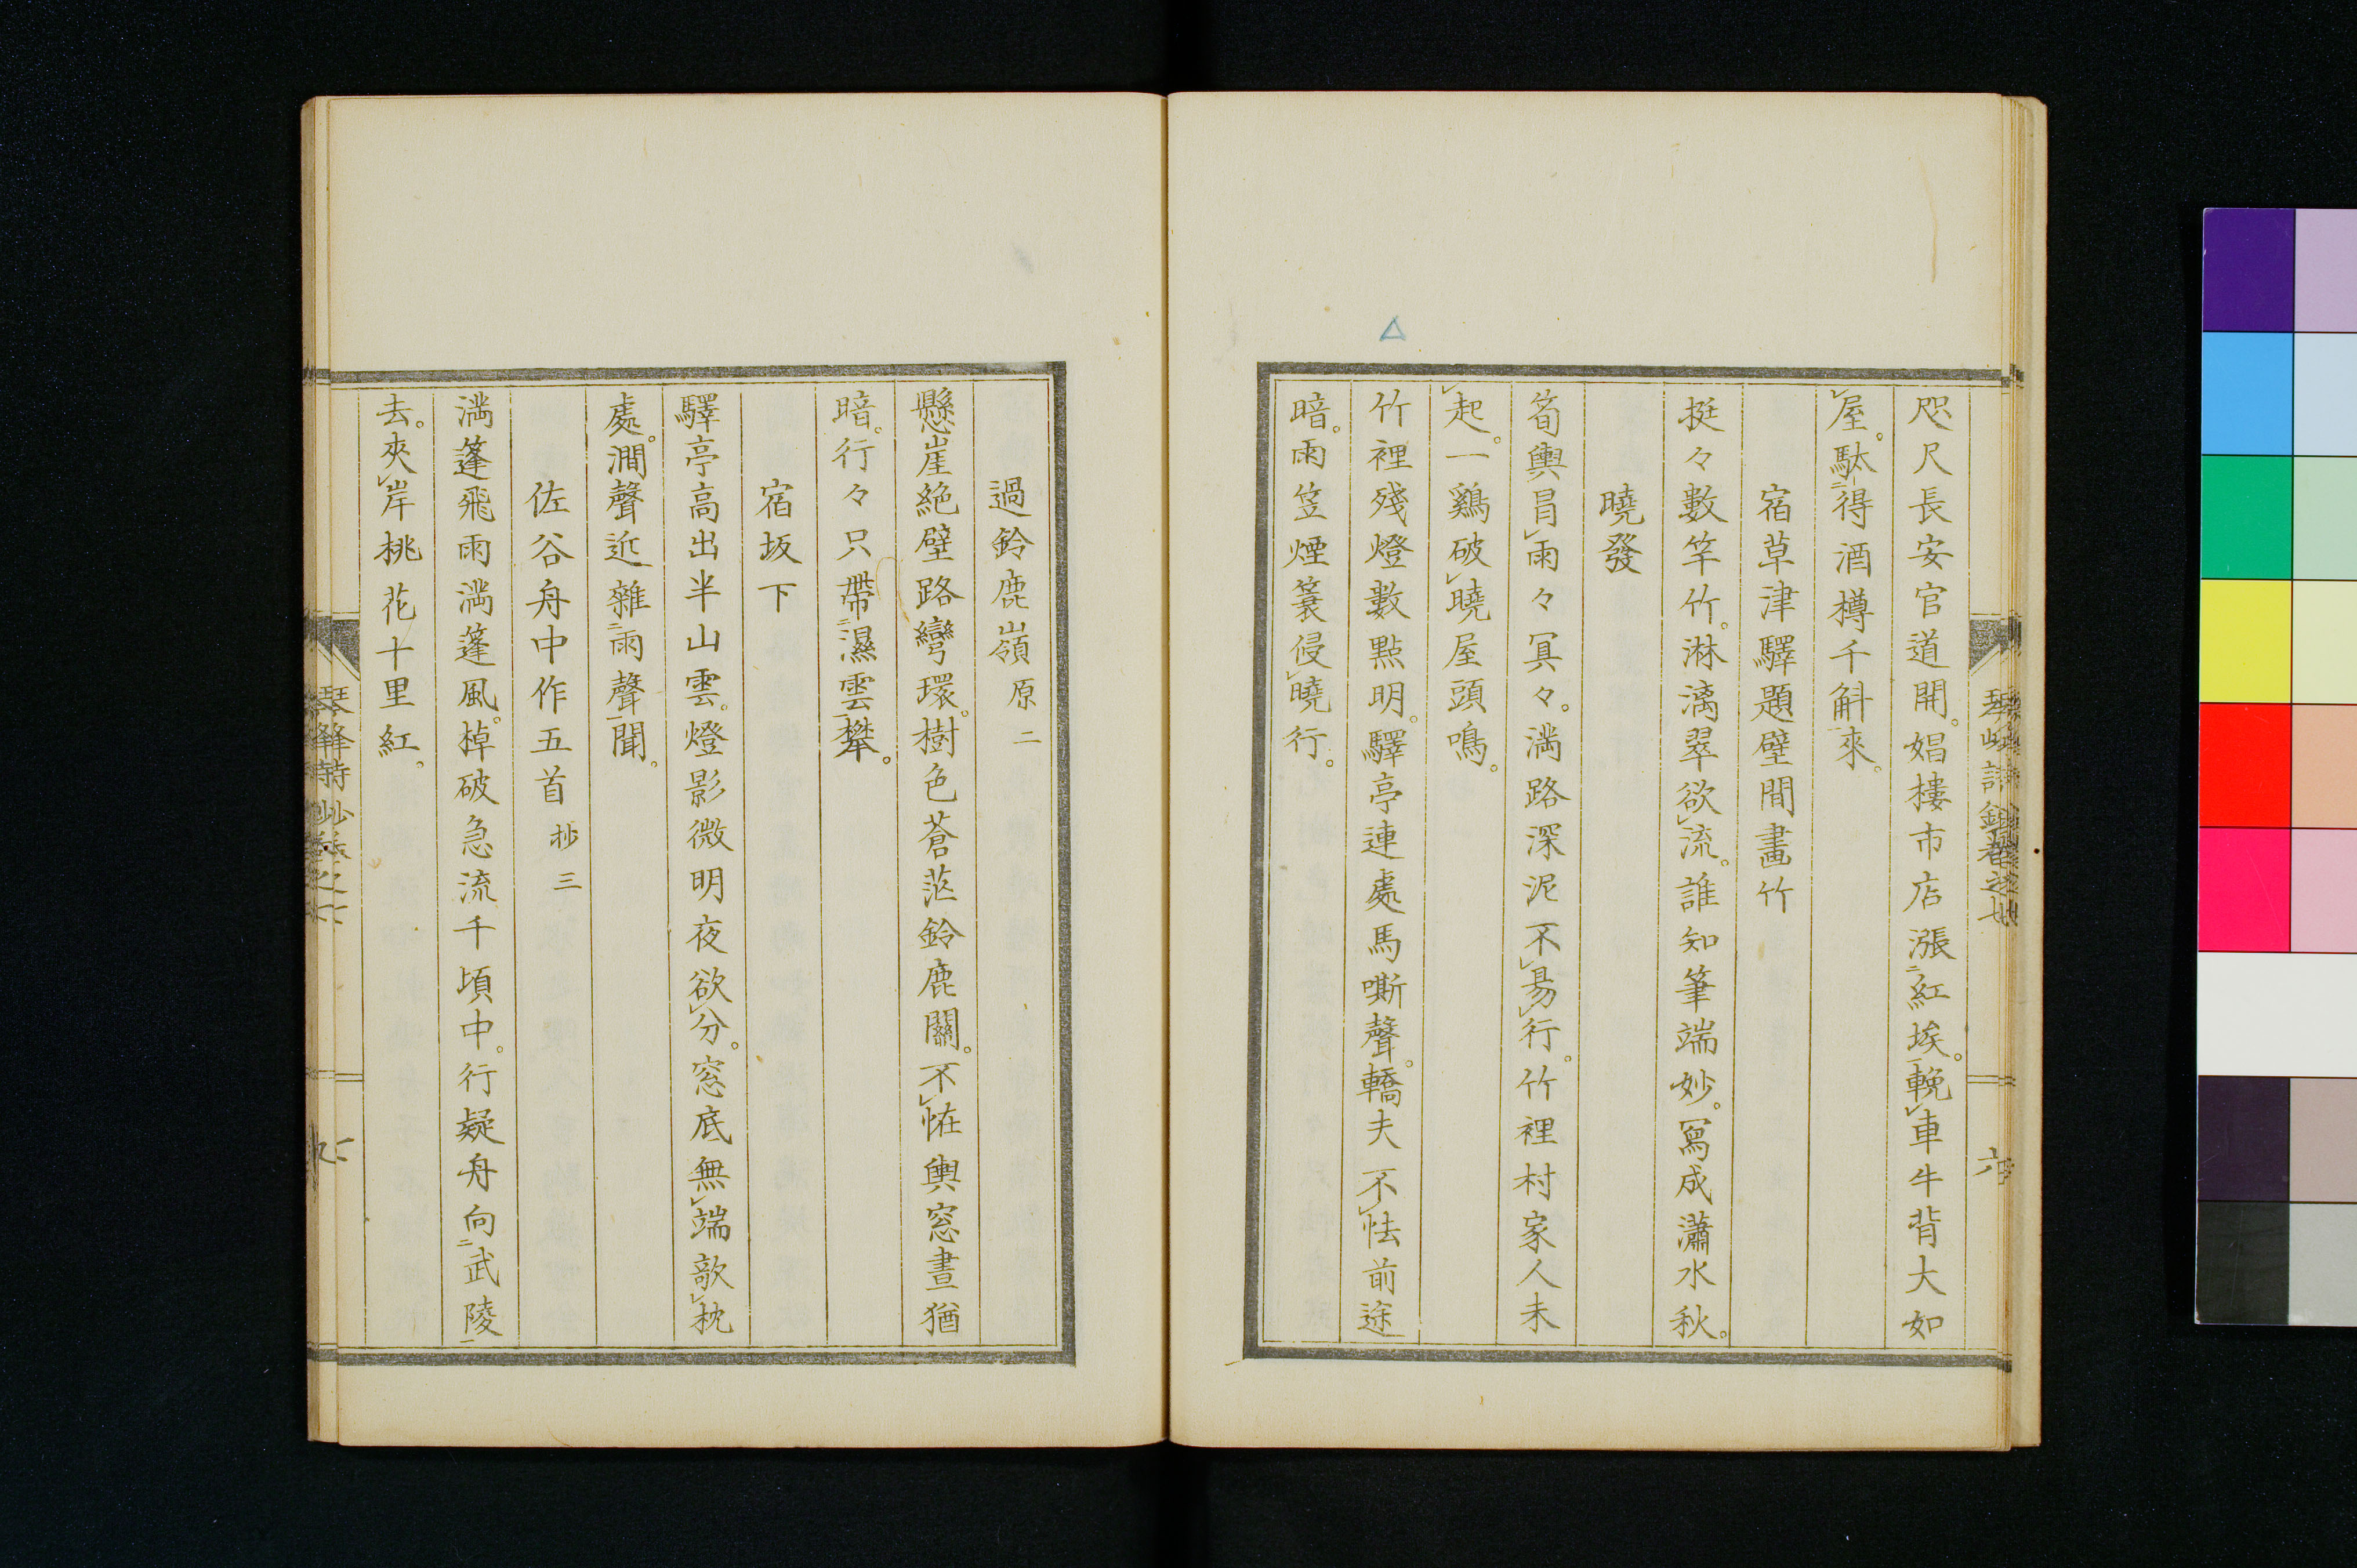 咫尺長安官道開。娼樓市店漲紅埃。輓車牛背大如
屋。駄得酒樽千斛來。
宿草津驛題壁間畫竹
挺々數竿竹。淋漓翠欲流。誰知筆端妙。寫成瀟水秋。
曉發
筍輿冒雨々冥々。満路深泥不易行。竹裡村家人未
起。一鷄破曉屋頭鳴。
竹裡殘燈數點明。驛亭連處馬嘶聲。轎夫不怯前途
暗。雨笠煙簑侵曉行。
過鈴鹿嶺 原二
懸崖絶壁路彎環。樹色蒼茫鈴鹿關。不恠輿窓晝猶
暗。行々只帶濕雲攀。
宿坂下
驛亭高出半山雲。燈影微明夜欲分。窓底無端欹枕
處。澗聲近雜雨聲聞。
佐谷舟中作五首 抄三
満篷飛雨満篷風。棹破急流千頃中。行疑舟向武陵
去。夾岸桃花十里紅。